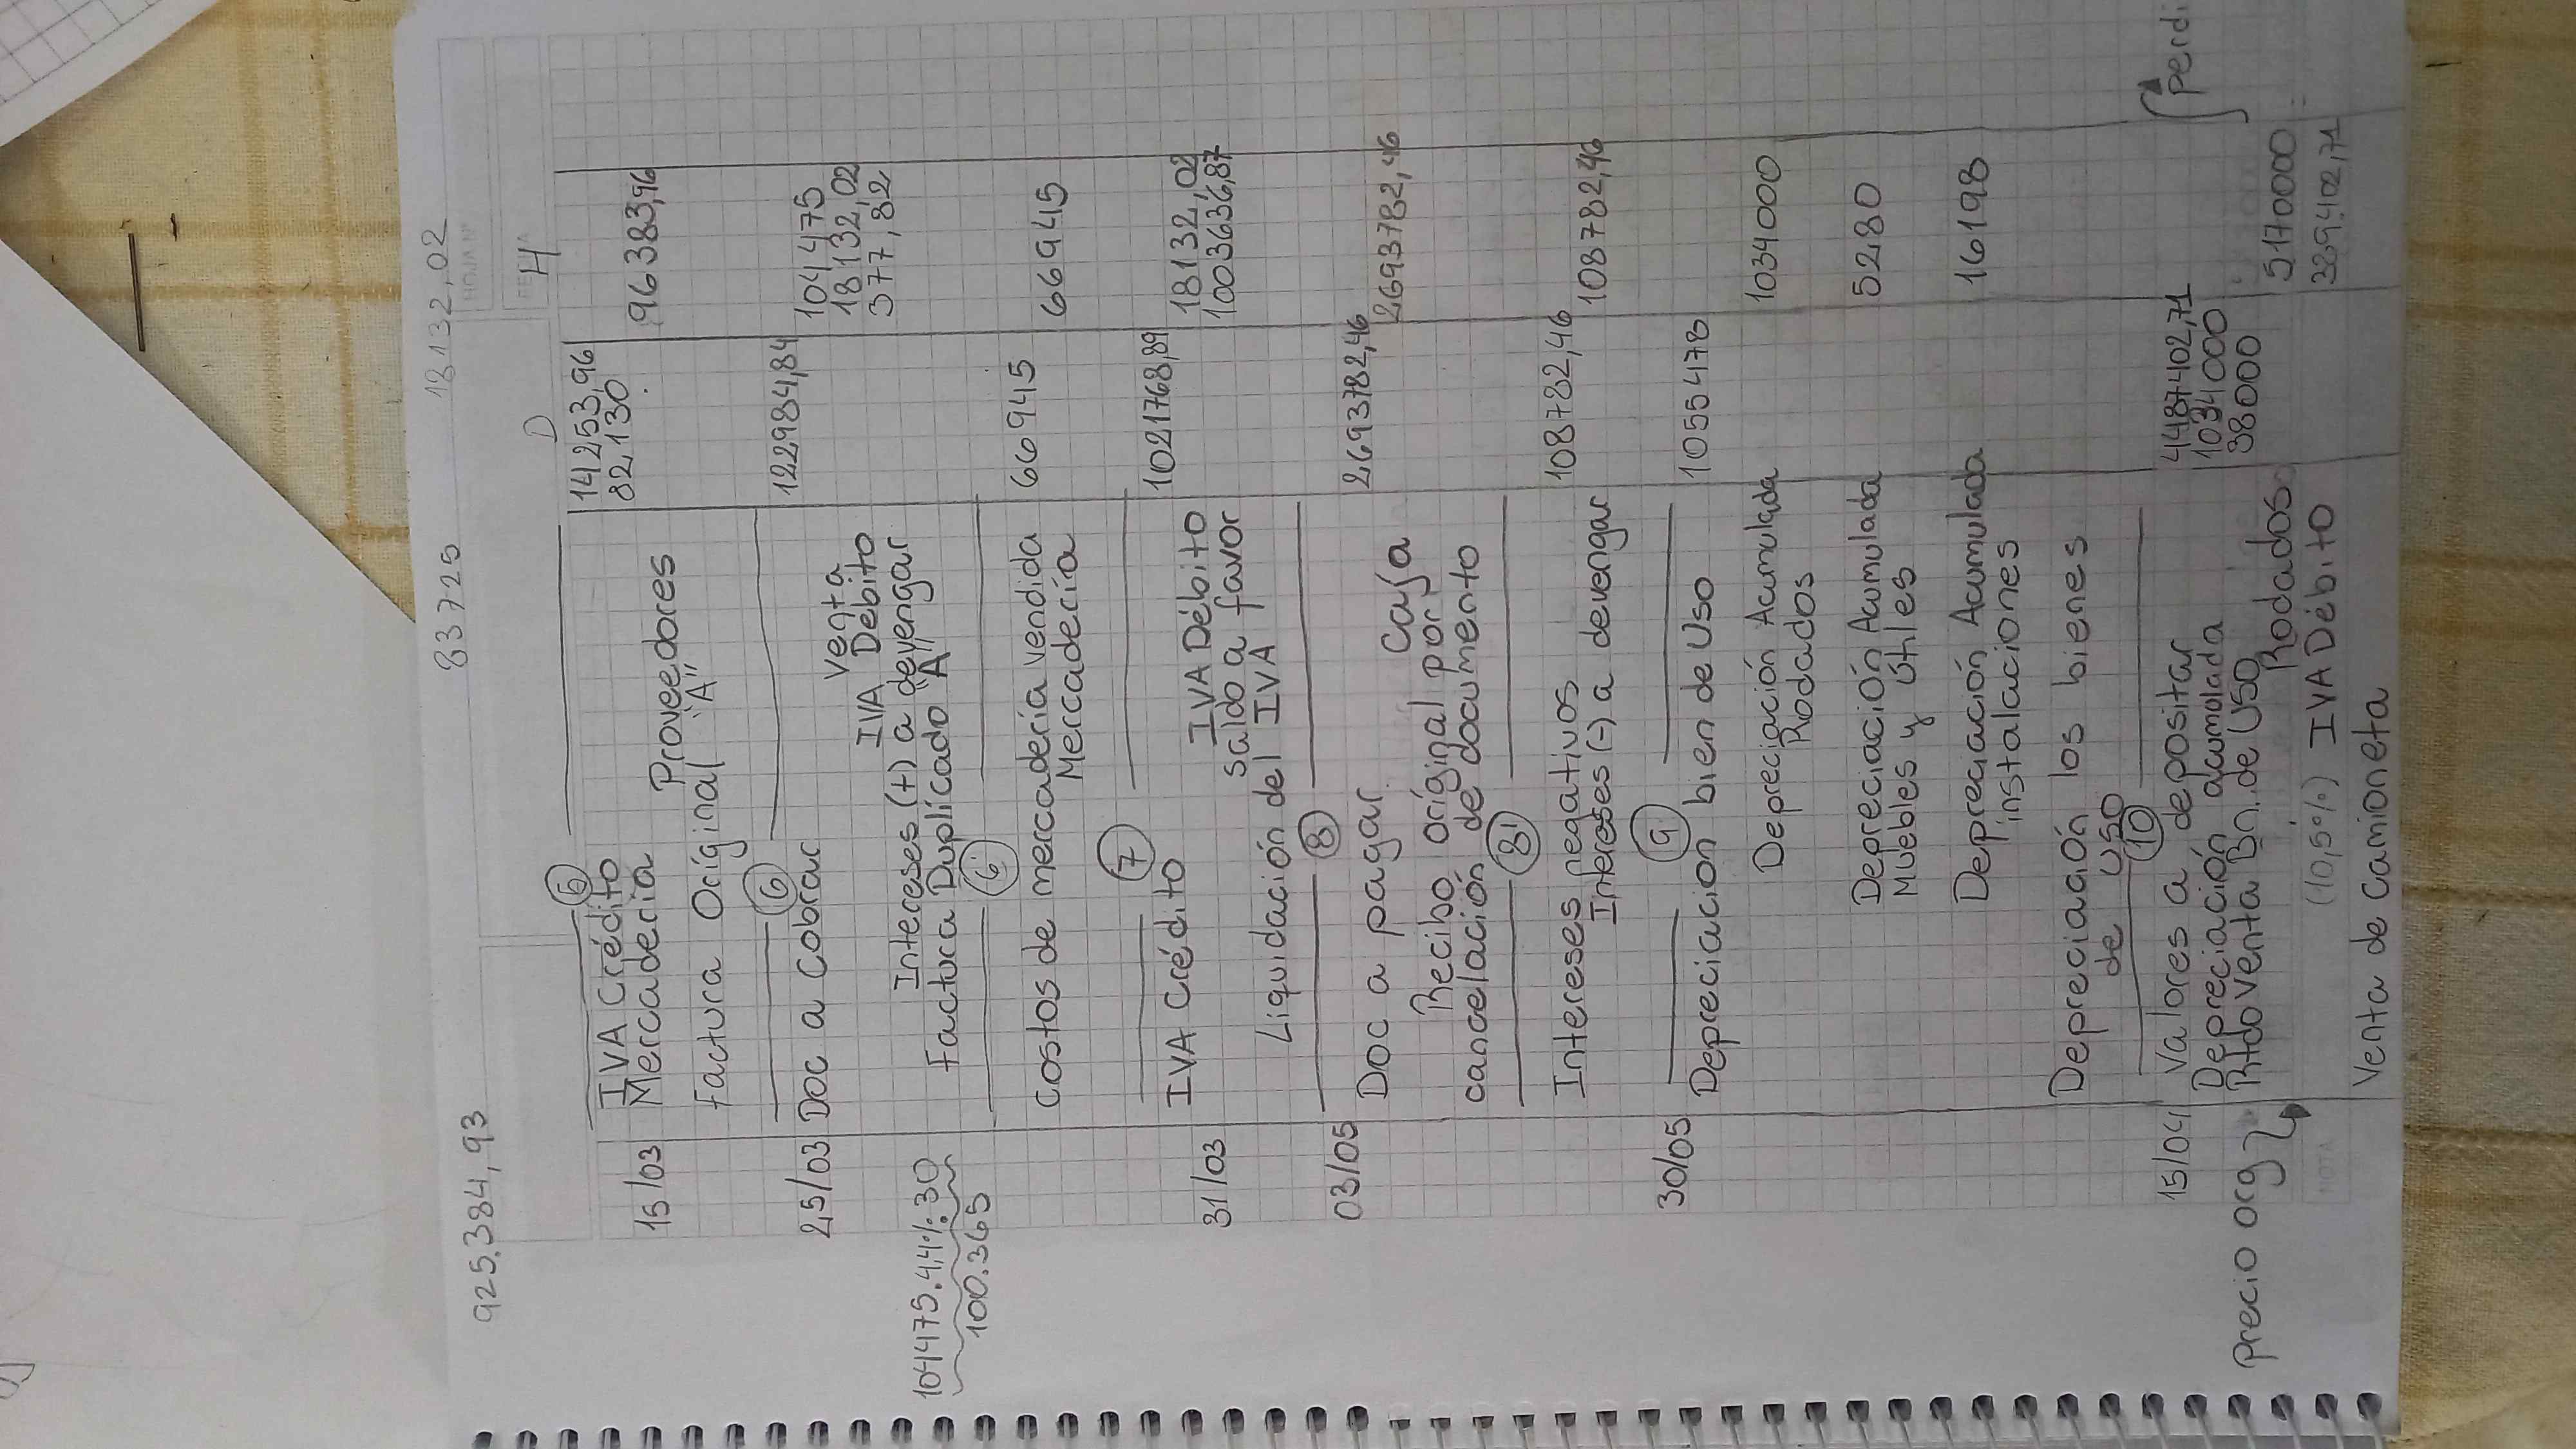 925.384,93 83725 18132,02
HOJA Nº
FECHA
D H
15/03 ⑤
IVA Crédito 14253,96
Mercadería 82.130
Proveedores 96383,96
Factura Original "A"
25/03 ⑥
Doc a Cobrar 122984,84
Venta 104475
IVA Débito 18132,02
Intereses (+) a devengar 377,82
Factura Duplicado "A"
104475.4,4%.30
100.365
⑥'
Costos de mercadería vendida 66945
Mercadería 66945
31/03 ⑦
IVA Crédito 1021768,89
IVA Débito 18132,02
saldo a favor 1003636,87
Liquidación del IVA
03/05 ⑧
Doc a pagar 2693782,46
Caja 2693782,46
Recibo original por
cancelación de documento
⑧'
Intereses negativos 108782,46
Intereses (-) a devengar 108782,46
30/05 ⑨
Depreciación bien de Uso 1055478
Depreciación Acumulada 1034000
Rodados
Depreciación Acumulada 5280
Muebles y Útiles
Depreciación Acumulada 16198
instalaciones
Depreciación los bienes
de uso
15/04 ⑩
Valores a depositar 4487402,71
Depreciación acumulada 1034000
Rtdo venta Bn. de Uso 38000 perdi
Precio org Rodados 5170000
(10,5%) IVA Débito 389.402,71
Venta de camioneta
NOTA